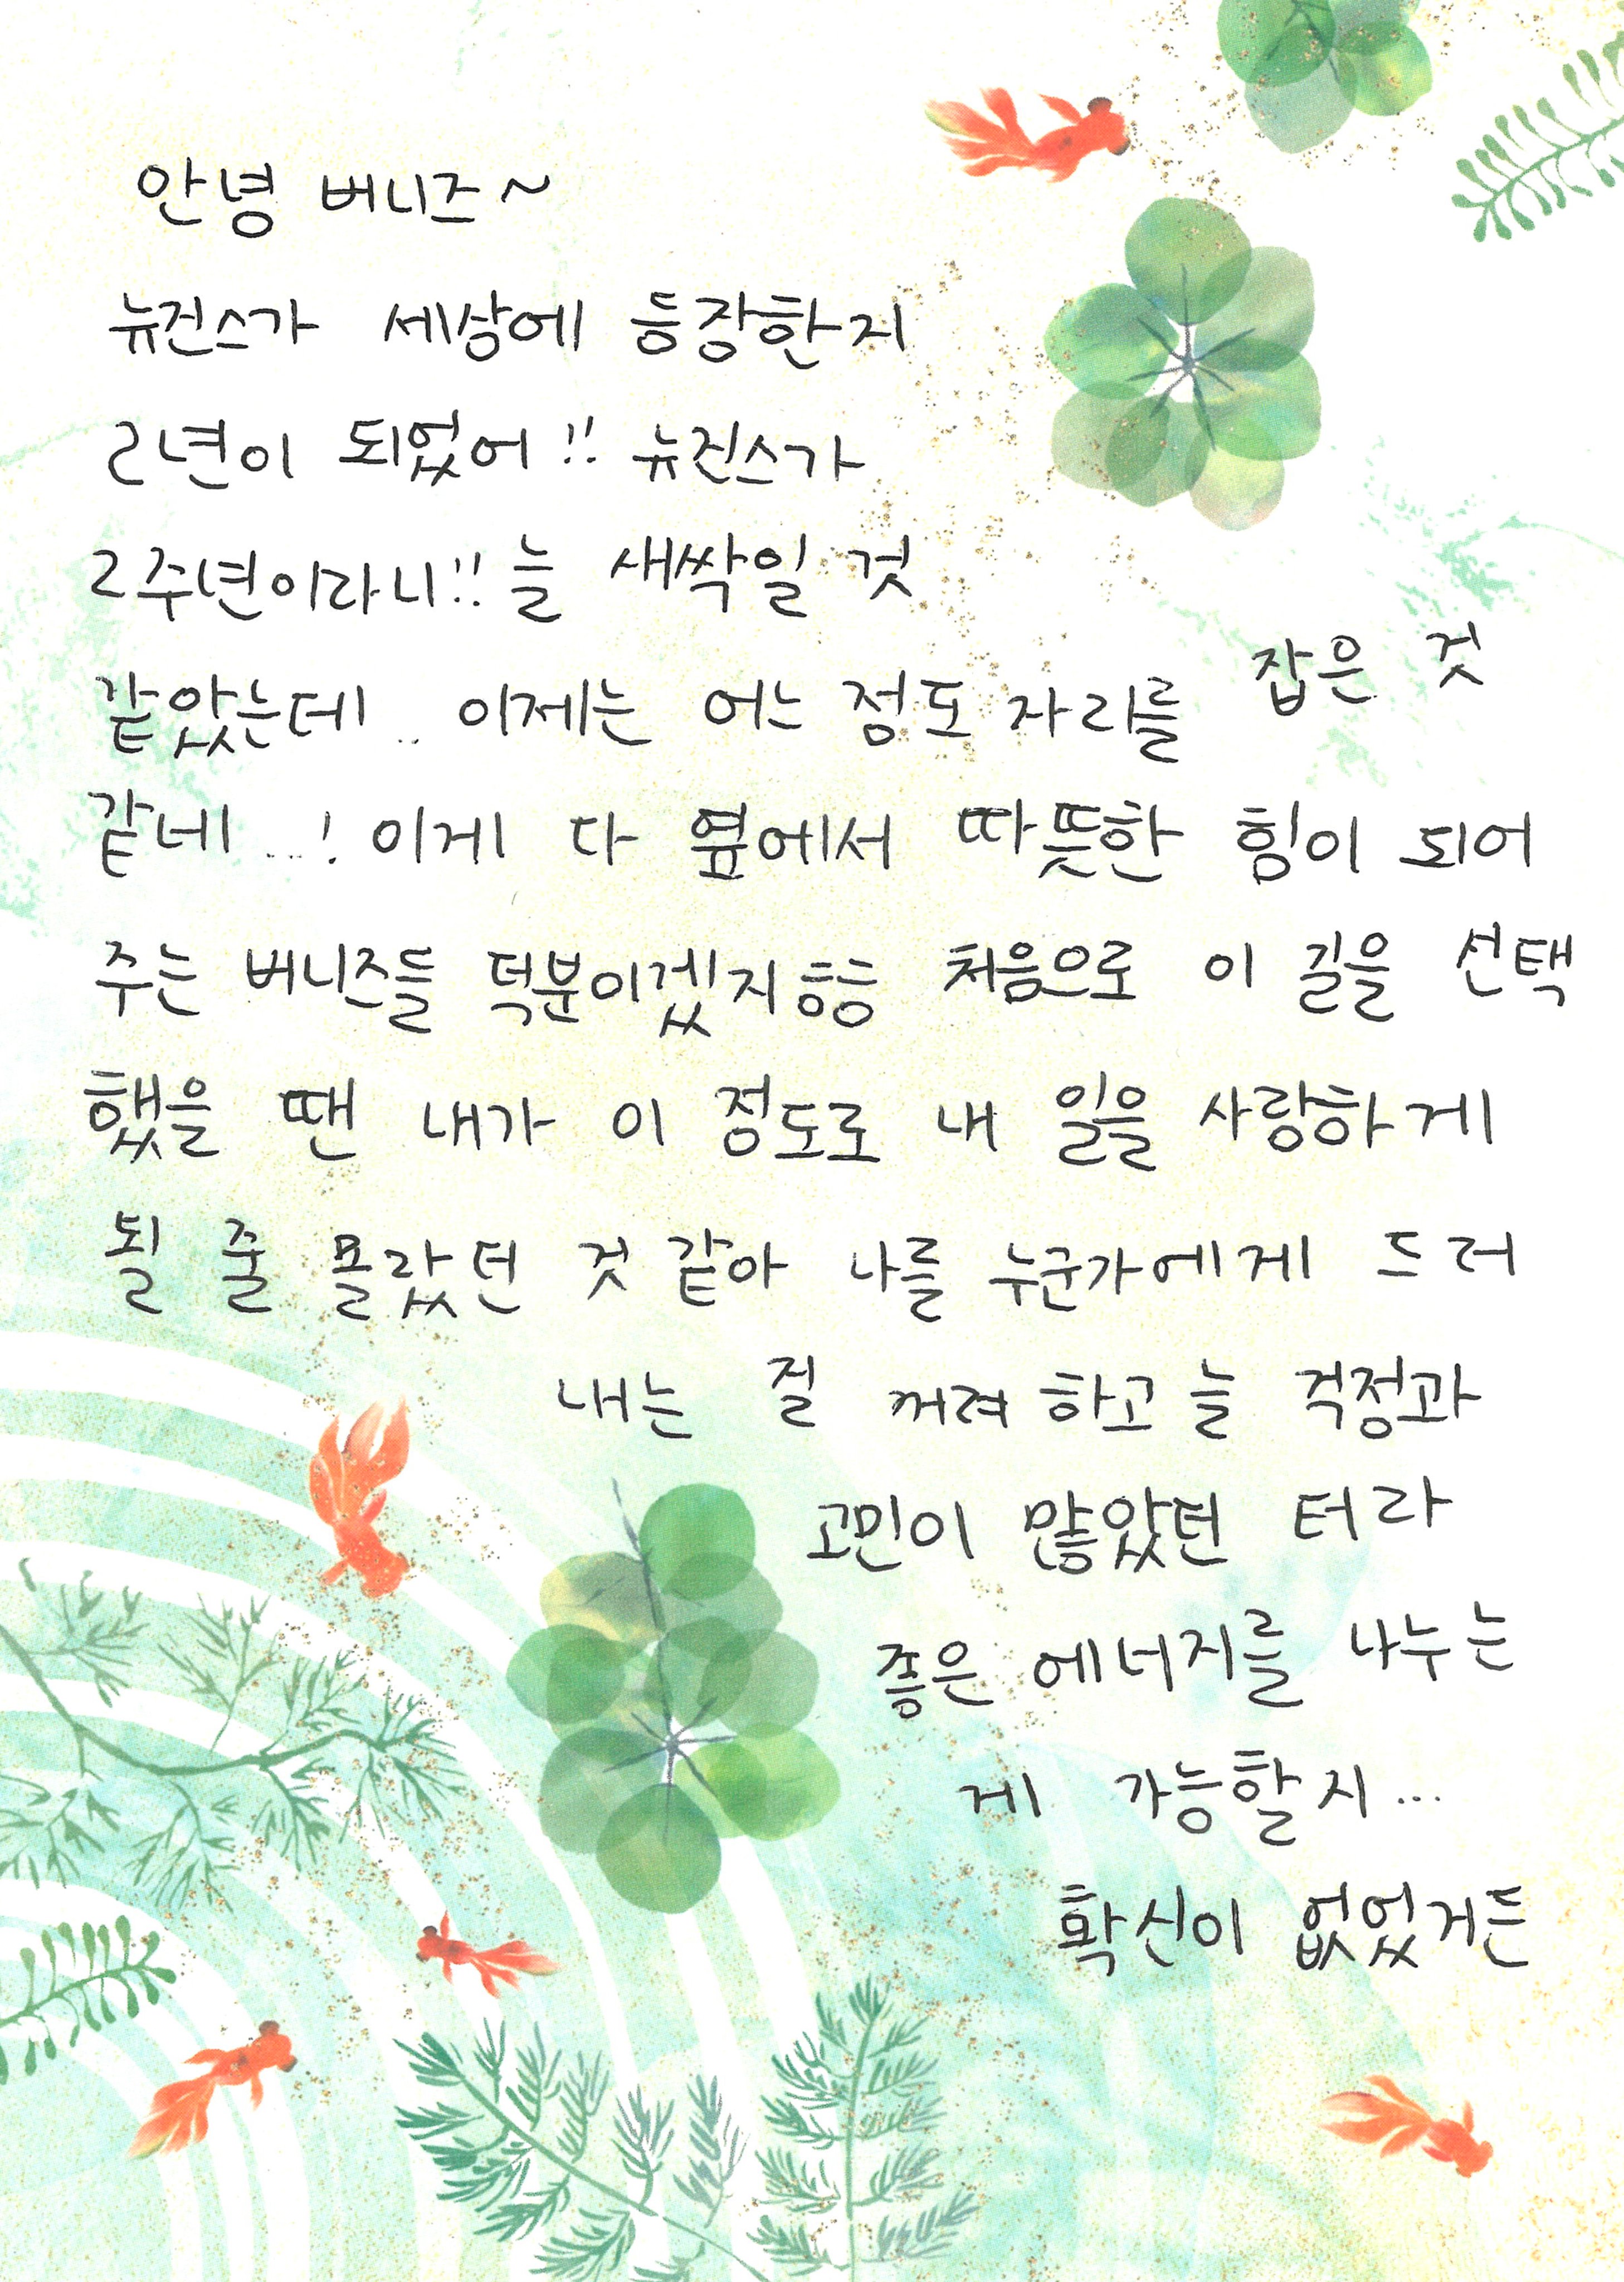 안녕 버니즈~
뉴진스가 세상에 등장한지
2년이 되었어!! 뉴진스가
2주년이라니!! 늘 새싹일 것
같았는데.. 이제는 어느 정도 자리를 잡은 것
같네...! 이게 다 옆에서 따뜻한 힘이 되어
주는 버니즈들 덕분이겠지흠흠 처음으로 이 길을 선택
했을 땐 내가 이 정도로 내 일을 사랑하게
될 줄 몰랐던 것 같아 나를 누군가에게 드러
내는 걸 꺼려 하고 늘 걱정과
고민이 많았던 터라
좋은 에너지를 나누는
게 가능할지...
확신이 없었거든